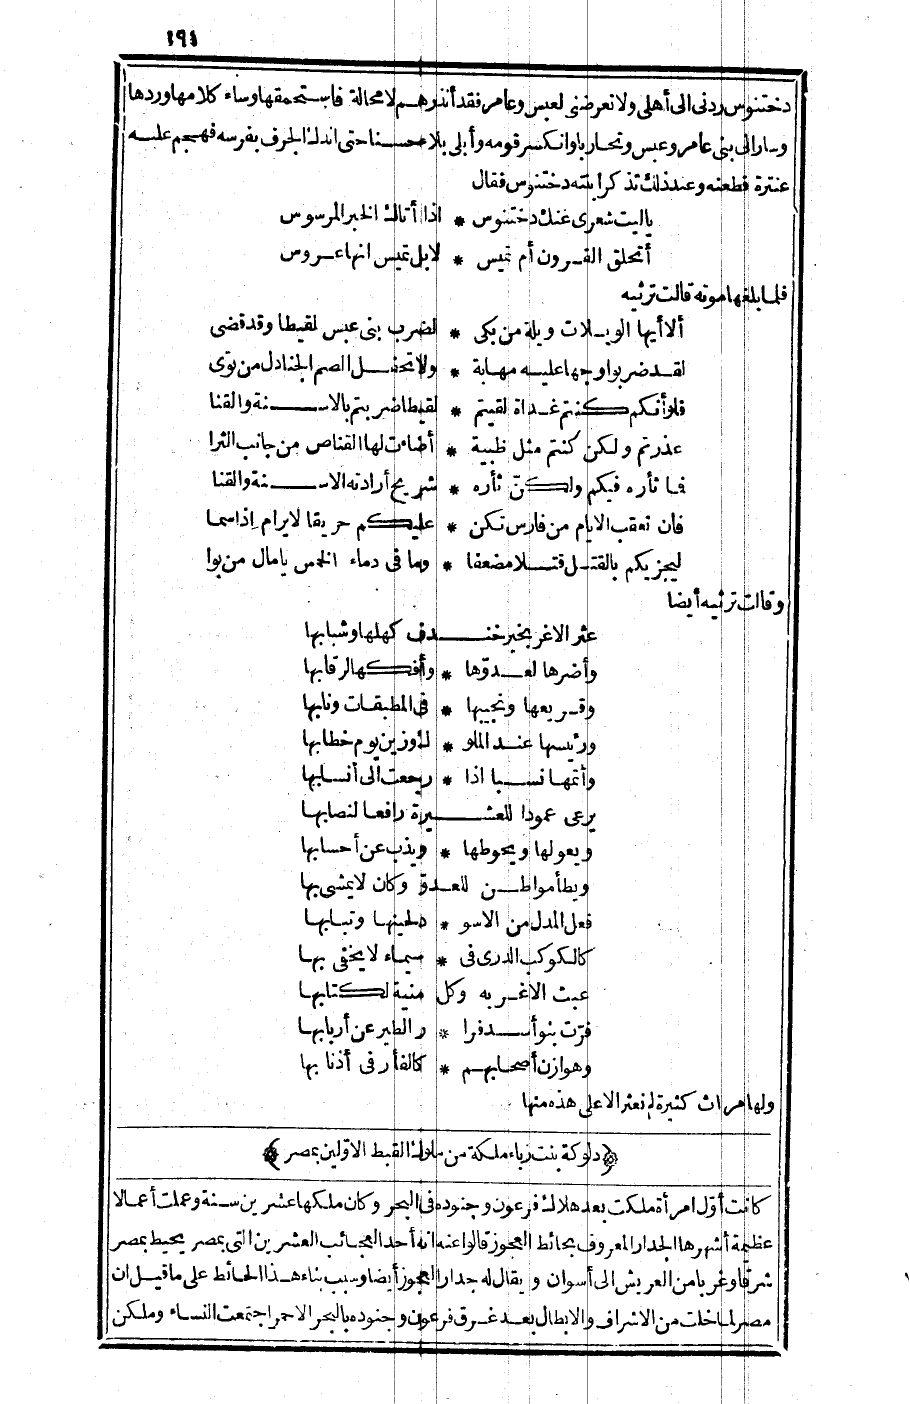 ١٩١
دختنوس ردنى الى أهلى ولا تعرضنى لعبس وعامر فقد أنذرهم لا محالة فاستحمقها وساء كلامها وردها
وسار الى بنى عامر وعبس وتحاربا وانكسر قومه وأبلى بلاء حسنا حتى اندلذ الجرف بفرسه فهجم عليه
عنترة فطعنه وعند ذلك تذكر ابنته دختنوس فقال
يا ليت شعرى عنك دختنوس * اذا أتاك الخبر المرسوس
أتحلق القرون أم تميس * لا بل تميس انها عروس
فلما بلغها موته قالت ترثيه
ألا أيها الويلات ويلة من بكى * لضرب بنى عبس لقيطا وقد قضى
لقد ضربوا وجها عليه مهابة * ولا تحفل الصم الجنادل من ثوى
فلو أنكم كنتم غداة لقيتم * لقيطا ضربتم بالاسنة والقنا
عذرتم ولكن كنتم مثل ظبية * أضاءت لها القناص من جانب الثرا
فما ثأره فيكم ولكن ثأره * شريح أرادته الاسنة والقنا
فان تعقب الايام من فارس تكن * عليكم حريقا لا يرام اذا سما
ليجزيكم بالقتل قتلا مضعفا * وما فى دماء الخمس يا مال من بوا
وقالت ترثيه أيضا
عثر الاغر بخير خندف كهلها وشبابها
وأضرها لعدوّها * وأفكها لرقابها
وقريعها ونجيبها * فى المطبقات ونابها
ورئيسها عند الملو * ك وزين يوم خطابها
وأتمها نسبا اذا * رجعت الى أنسابها
يرعى عمودا للعشيرة رافعا لنصابها
ويعولها ويحوطها * ويذب عن أحسابها
ويطأ مواطن للعدوّ وكان لا يمشى بها
فعل المدل من الاسو * د لحينها وتبابها
كالكوكب الدرى فى * سيماء لا يخفى بها
عبث الاغر به وكل منية لكتابها
فرّت بنو أسد فرا * ر الطير عن أربابها
وهوازن أصحابهم * كالفأر فى أذنابها
ولها مراث كثيرة لم نعثر الا على هذه منها
﴿دلوكة بنت زباء ملكة من ملوك القبط الاوّلين بمصر﴾
كانت أوّل امرأة ملكت بعد هلاك فرعون وجنوده فى البحر وكان ملكها عشرين سنة وعملت أعمالا
عظيمة أشهرها الجدار المعروف بحائط العجوز قالوا عنه انه أحد العجائب العشرين التى بمصر يحيط بمصر
شرقا وغربا من العريش الى أسوان ويقال له جدار العجوز أيضا وسبب بناء هذا الحائط على ما قيل ان
مصر لما خلت من الاشراف والابطال بعد غرق فرعون وجنوده بالبحر الاحمر اجتمعت النساء وملكن